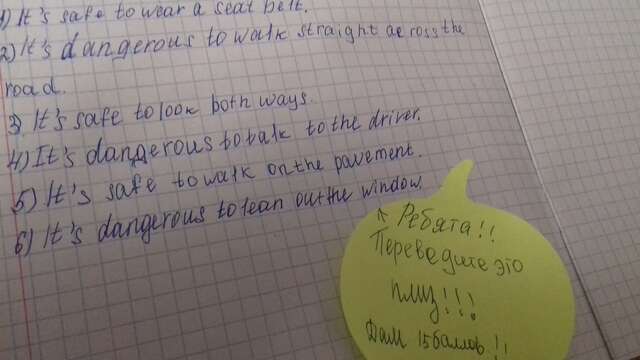 1) It's safe to wear a seat belt.
2) It's dangerous to walk straight across the
road.
3) It's safe to look both ways.
4) It's dangerous to talk to the driver.
5) It's safe to walk on the pavement.
6) It's dangerous to lean out the window.
Ребята!!
Переведите это
плиз!!!
Дам 15 баллов!!